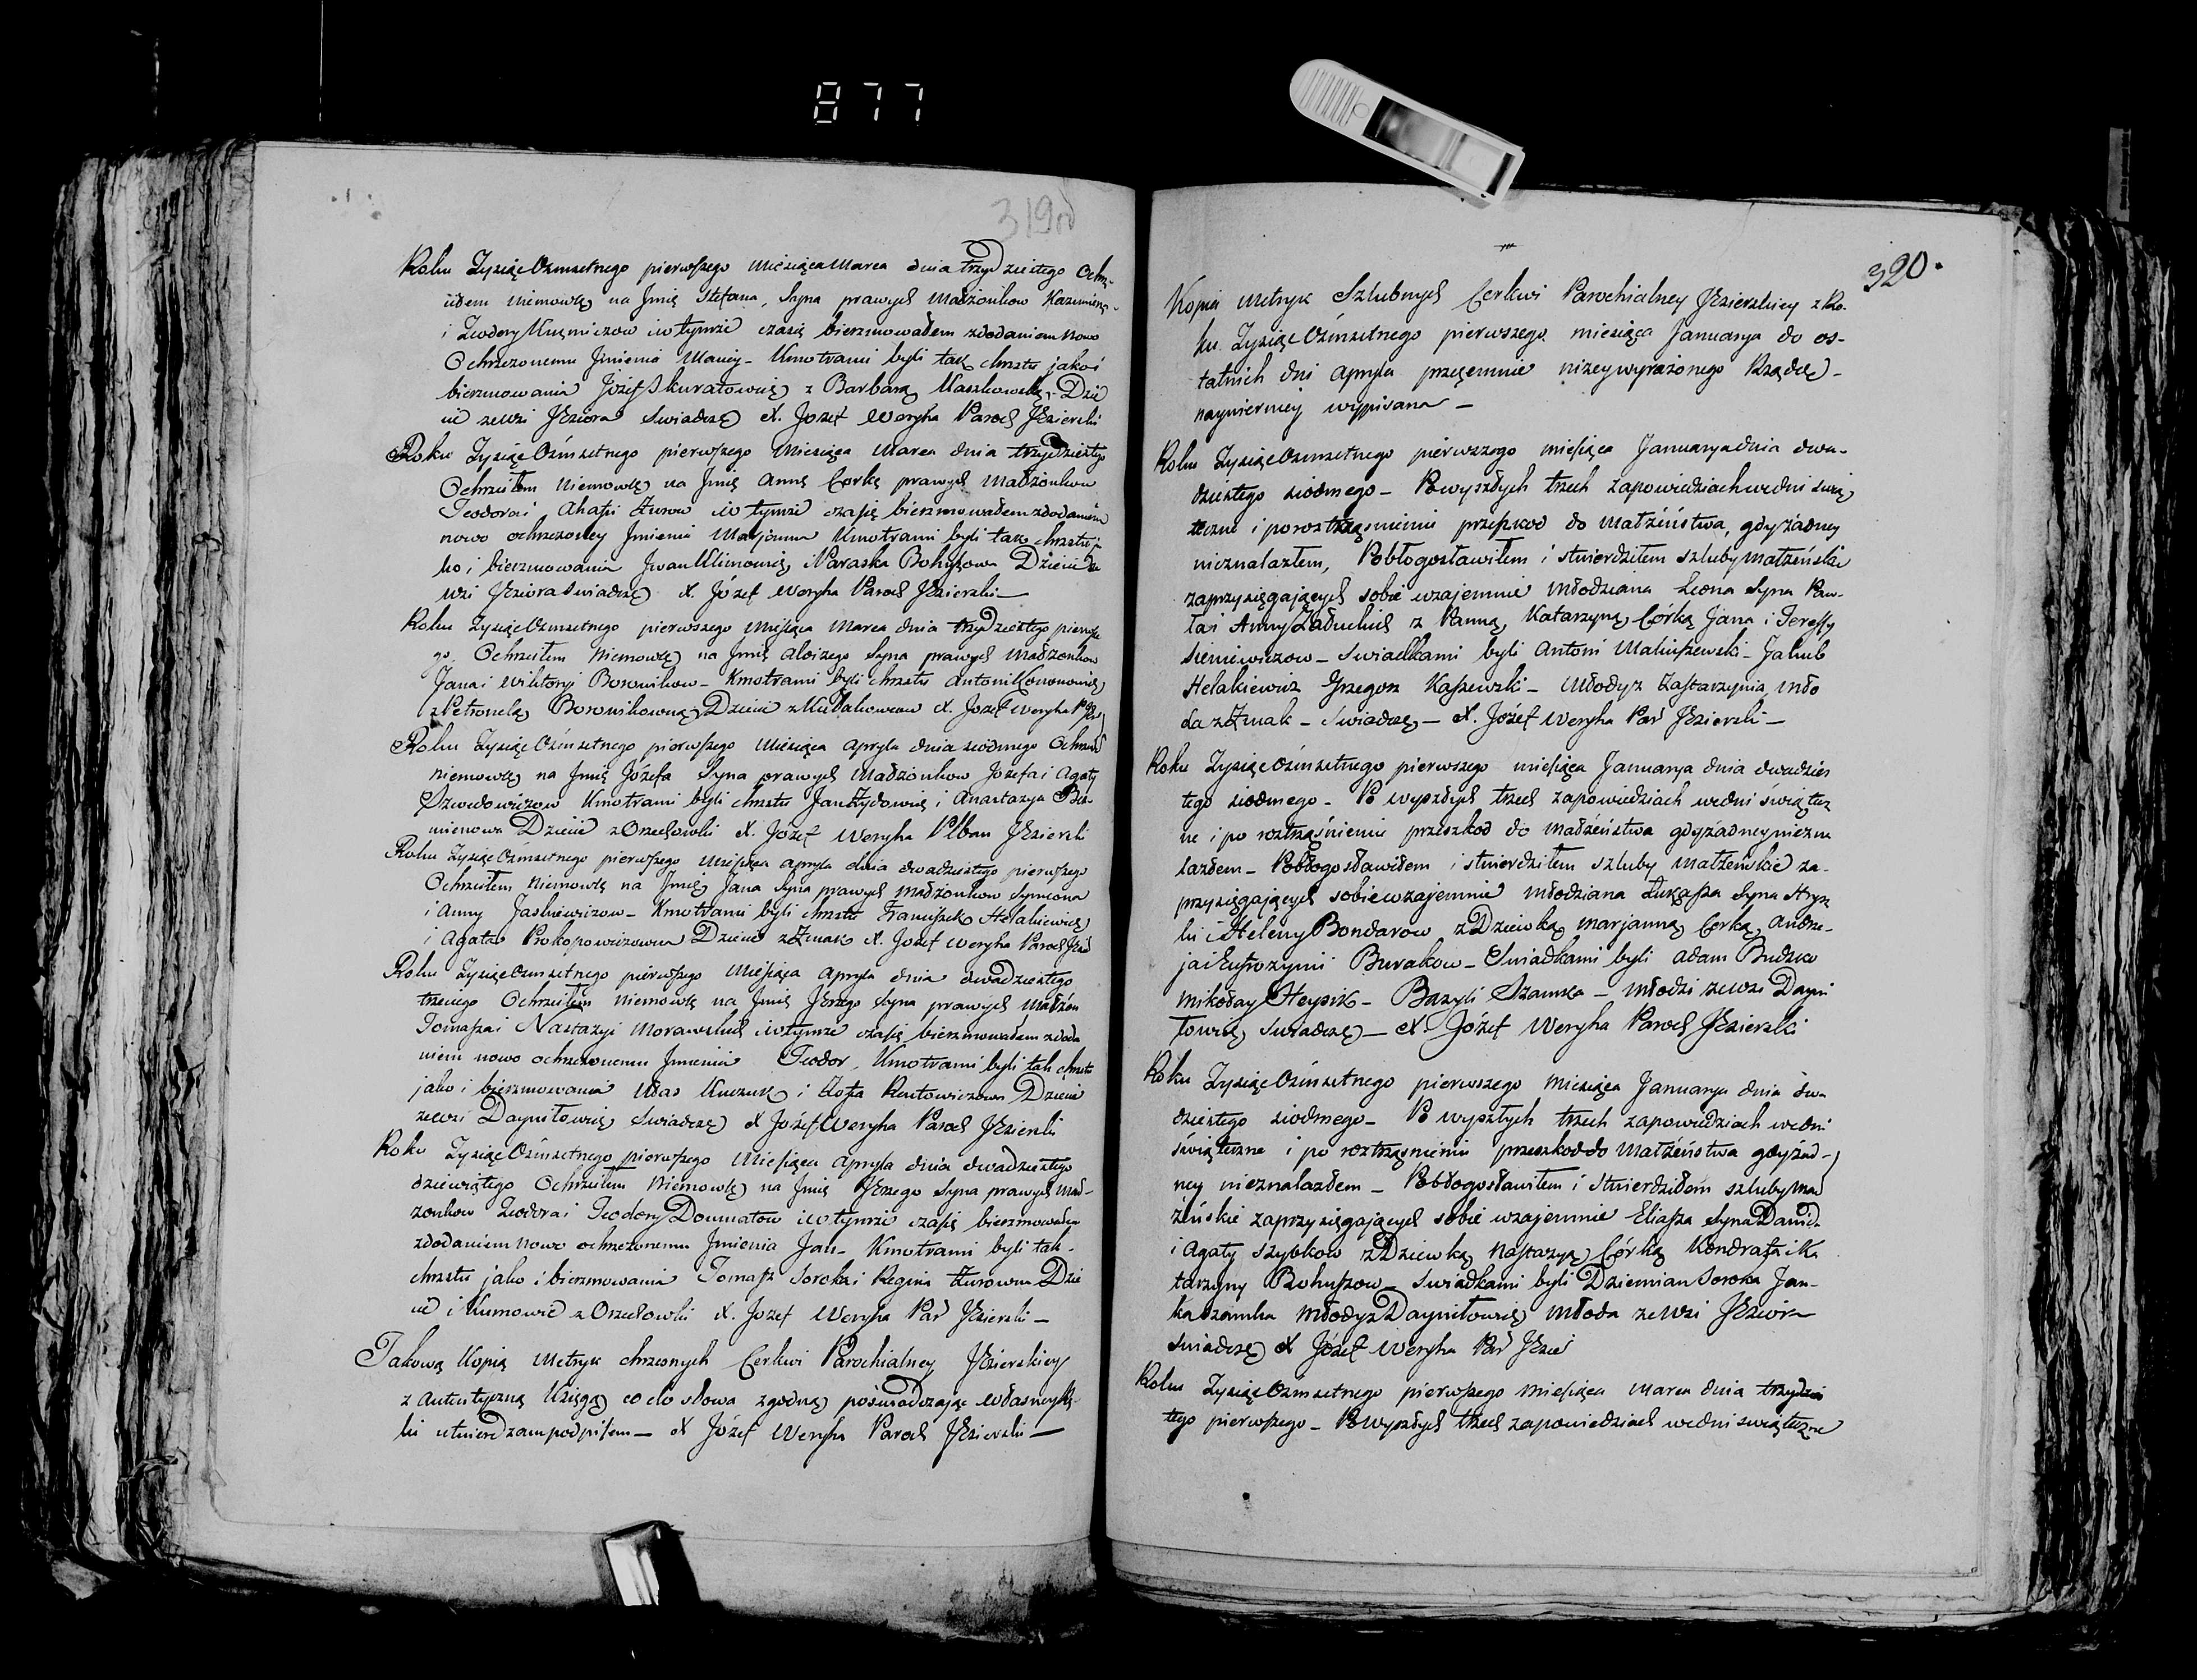 877
319od
Roku Tysiąc Ozmsetnego pierwszego Miesiąca Marca dnia trzydziestego Ochrz-
ciłem Niemowlę na Jmię Stefana, Syna prawych Małżonkow Kazimierza
i Teodory w tymże czasię bierzmowałem zdodaniem nowo
Ochrzczonemu Jmienia Maciej - Kmotrami byli tak chrztu jako i
bierzmowania Józef Skuratowicz z Barbarą Kaszkowską, Dzie
cie zewsi Jeziora Swiadczę X. Jozef Weryha Paroch Jezierski
Roku Tysiąc Ozmsetnego pierwszego Miesiąca Marca dnia trzydziestego
Ochrzciłem Niemowlę na Jmię Annę Corkę prawych Małżonkow
Teodora i Ahafii Zurow i w tymże czasię bierzmowałem zdodaniem
nowo ochrzczoney Jmienia Marjanna Kmotrami byli tak chrztu ja
ko i bierzmowania Jwan Klimowicz, Naraska Bohuszowa Dziecie ze
wsi Jeziora Swiadczę X. Józef Weryha Paroch Jezierski
Roku Tysiąc Ozmsetnego pierwszego Miesiąca Marca dnia trzydziestego pierwsze
go, Ochrzciłem Niemowlę na Jmię Aloizego Syna prawych Małżonkow
Jana i Wiktoryi Borownikow - Kmotrami byli chrztu Antoni Kononowicz
z Petronelą Borownikowną, Dziecie z X. Jozef Weryha
Roku Tysiąc Ozmsetnego pierwszego Miesiąca Apryla dnia siodmego Ochrzcił
niemowlę na Jmię Józefa Syna prawych Małżonkow Jozefa i Agaty
Szwedowiczow Kmotrami byli chrztu Jan Zydowicz i Anastazya
mienowa Dziecie z Orzechowki X. Józef Weryha Plban Jezierski
Roku Tysiąc Ozmsetnego pierwszego Miesiąca Apryla dnia dwadziestego pierwszego
Ochrzciłem Niemowlę na Jmię Jana Syna prawych Małżonkow Symeona
i Anny Jaskiewiczow - Kmotrami byli chrztu Franciszek Helakiewicz
i Agata Prokopowiczowna Dziecie z Zmak X. Jozef Weryha Paroch Jezie
Roku Tysiąc Ozmsetnego pierwszego Miesiąca Apryla dnia dwadziestego
trzeciego Ochrzciłem Niemowlę na Jmię Jerzego Syna prawych Małżon
Tomasza i Nastazyi Morawskich i w tymże czasię bierzmowałem zdoda
niem nowo ochrzczonemu Jmienia Teodor, Kmotrami byli tak chrztu
jako i bierzmowania Kuczuk i Zofia Rentowiczowa Dziecie
zewsi Dayniłowicz Swiadczę X Józef Weryha Paroch Jezierski
Roku Tysiąc Ozmsetnego pierwszego Miesiąca Apryla dnia dwadziestego
dziewiątego Ochrzciłem Niemowlę na Jmię Jerzego Syna prawych Mał-
zonkow Teodora i Teodory Doumatow i w tymże czasię bierzmowałem
zdodaniem nowo ochrzczonemu Jmienia Jan - Kmotrami byli tak
chrztu jako i bierzmowania Tomasz Soroka i Regina Zurowna Dzie
cie i Kumowie z Orzechowki X. Jozef Weryha Par Jezierski -
Takową Kopią Metryk chrzesnych Cerkwi Parochialney Jezierskiey
z Autentyczną Księgą co do słowa zgodną poświadczając własnoręk
ki utwierdzam podpisem - X Józef Weryha Paroch Jezierski -
320.
Kopia Metryk Szlubnych Cerkwi Parochialney Jezierskiey z Ro-
ku Tysiąc Ozmsetnego pierwszego miesiąca Januarya do os-
tatnich dni Apryla przezemnie niżey wyrażonego Rządcę
naywierniey wypisana -
Roku Tysiąc Ozmsetnego pierwszego miesiąca Januarya dnia dwu-
dziestego siodmego - Powyszłych trzech zapowiedziach wedni swią
teczne i po roztrząsnieniu przeszkod do małżeństwa, gdy żadney
nieznalazłem, Pobłogosławiłem i stwierdziłem szluby małżeńskie
zaprzysięgających sobie wzajemnie młodziana Leona Syna Paw-
ła i Anny Załuckich z Panną Katarzyną Córką Jana i Teressy
Sieniewiczow - Swiadkami byli Antoni Maliszewski - Jakub
Helakiewicz Grzegorz Kaszewski - Młody z Zastarzynia, Mło
da z Zmak - Swiadczę, - X. Józef Weryha Par Jezierski -
Roku Tysiąc Ozmsetnego pierwszego miesiąca Januarya dnia dwadzies
tego siodmego - Po wyszłych trzech zapowiedziach wedni świątecz
ne i po roztrząśnieniu przeszkod do małżeństwa gdy żadney niezna
lazłem - Pobłogosławiłem i stwierdziłem szluby małżeńskie za-
przysięgających sobie wzajemnie młodziana Łukasza Syna Hrysz
ki i Heleny Bondarow z Dziewką Marjanną Corką, Andrze-
ja i Eufrozynii Burakow - Swiadkami byli Adam Budzko
Mikołay Heysik - Bazyli Szamka - młodzi zewsi Dayni
łowicz, Swiadczę - X. Józef Weryha Paroch Jezierski
Roku Tysiąc Ozmsetnego pierwszego Miesiąca Januarya dnia dwu
dziestego siodmego - Po wyszłych trzech zapowiedziach wedni
świąteczne i po roztrząsnieniu przeszkod do małżeństwa gdy żad-
ney nieznalazłem - Pobłogosławiłem i stwierdziłem szluby Mał
żeńskie zaprzysięgających sobie wzajemnie Eliasza Syna Daniła
i Agaty Szybkow z Dziewką Nastazyą Córką Kondrata i Ka
tarzyny Bohuszow - Swiadkami byli Dziemian Soroka Jan-
ka Szamka młody z Dayniłowicz młoda zewsi Jeziora
Swiadczę X Józef Weryha Par Jezie
Roku Tysiąc Ozmsetnego pierwszego Miesiąca Marca dnia trzydzies
tego pierwszego - Powyszłych trzech zapowiedziach wedni swiąteczne